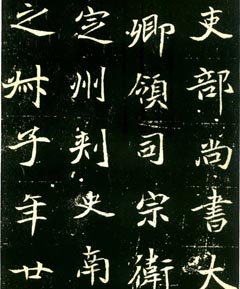 吏部尚書大
卿領司宗衛
定州刾史南
之子年廿